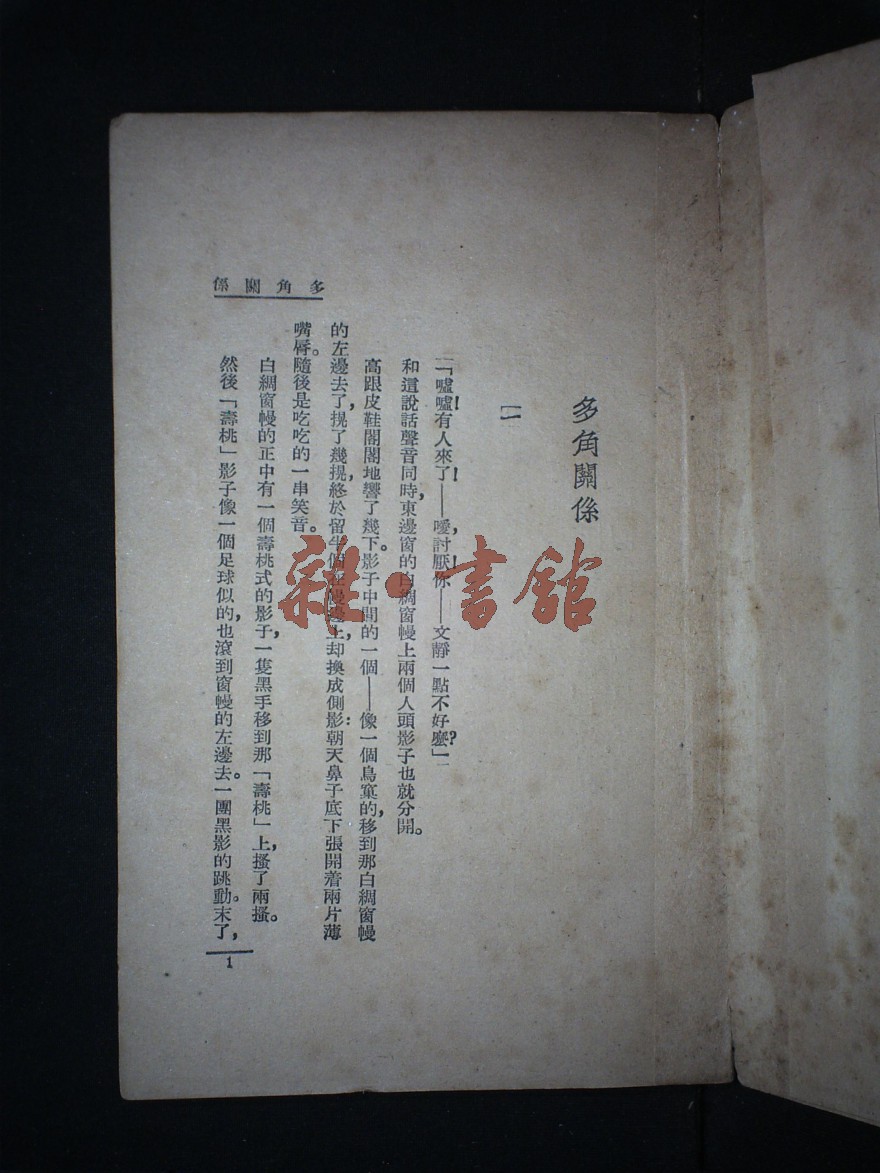 多角關係
多角關係
一
「噓!噓!有人來了!——噯,討厭!你——文靜一點不好麼?」
和這說話聲音同時,東邊窗的白綢窗幔上兩個人頭影子也就分開。
高跟皮鞋閣閣地響了幾下。影子中間的一個——像一個鳥窠的,移到那白綢窗幔
的左邊去了,提了幾提,終於留半個在幔邊上,却換成側影:朝天鼻子底下張開着兩片薄
嘴唇。隨後是吃吃的一串笑音。
白綢窗幔的正中有一個壽桃式的影子,一隻黑手移到那「壽桃」上,搔了兩搔。
然後「壽桃」影子像一個足球似的,也滾到窗幔的左邊去。一團黑影的跳動。末了,
1
雜·書館